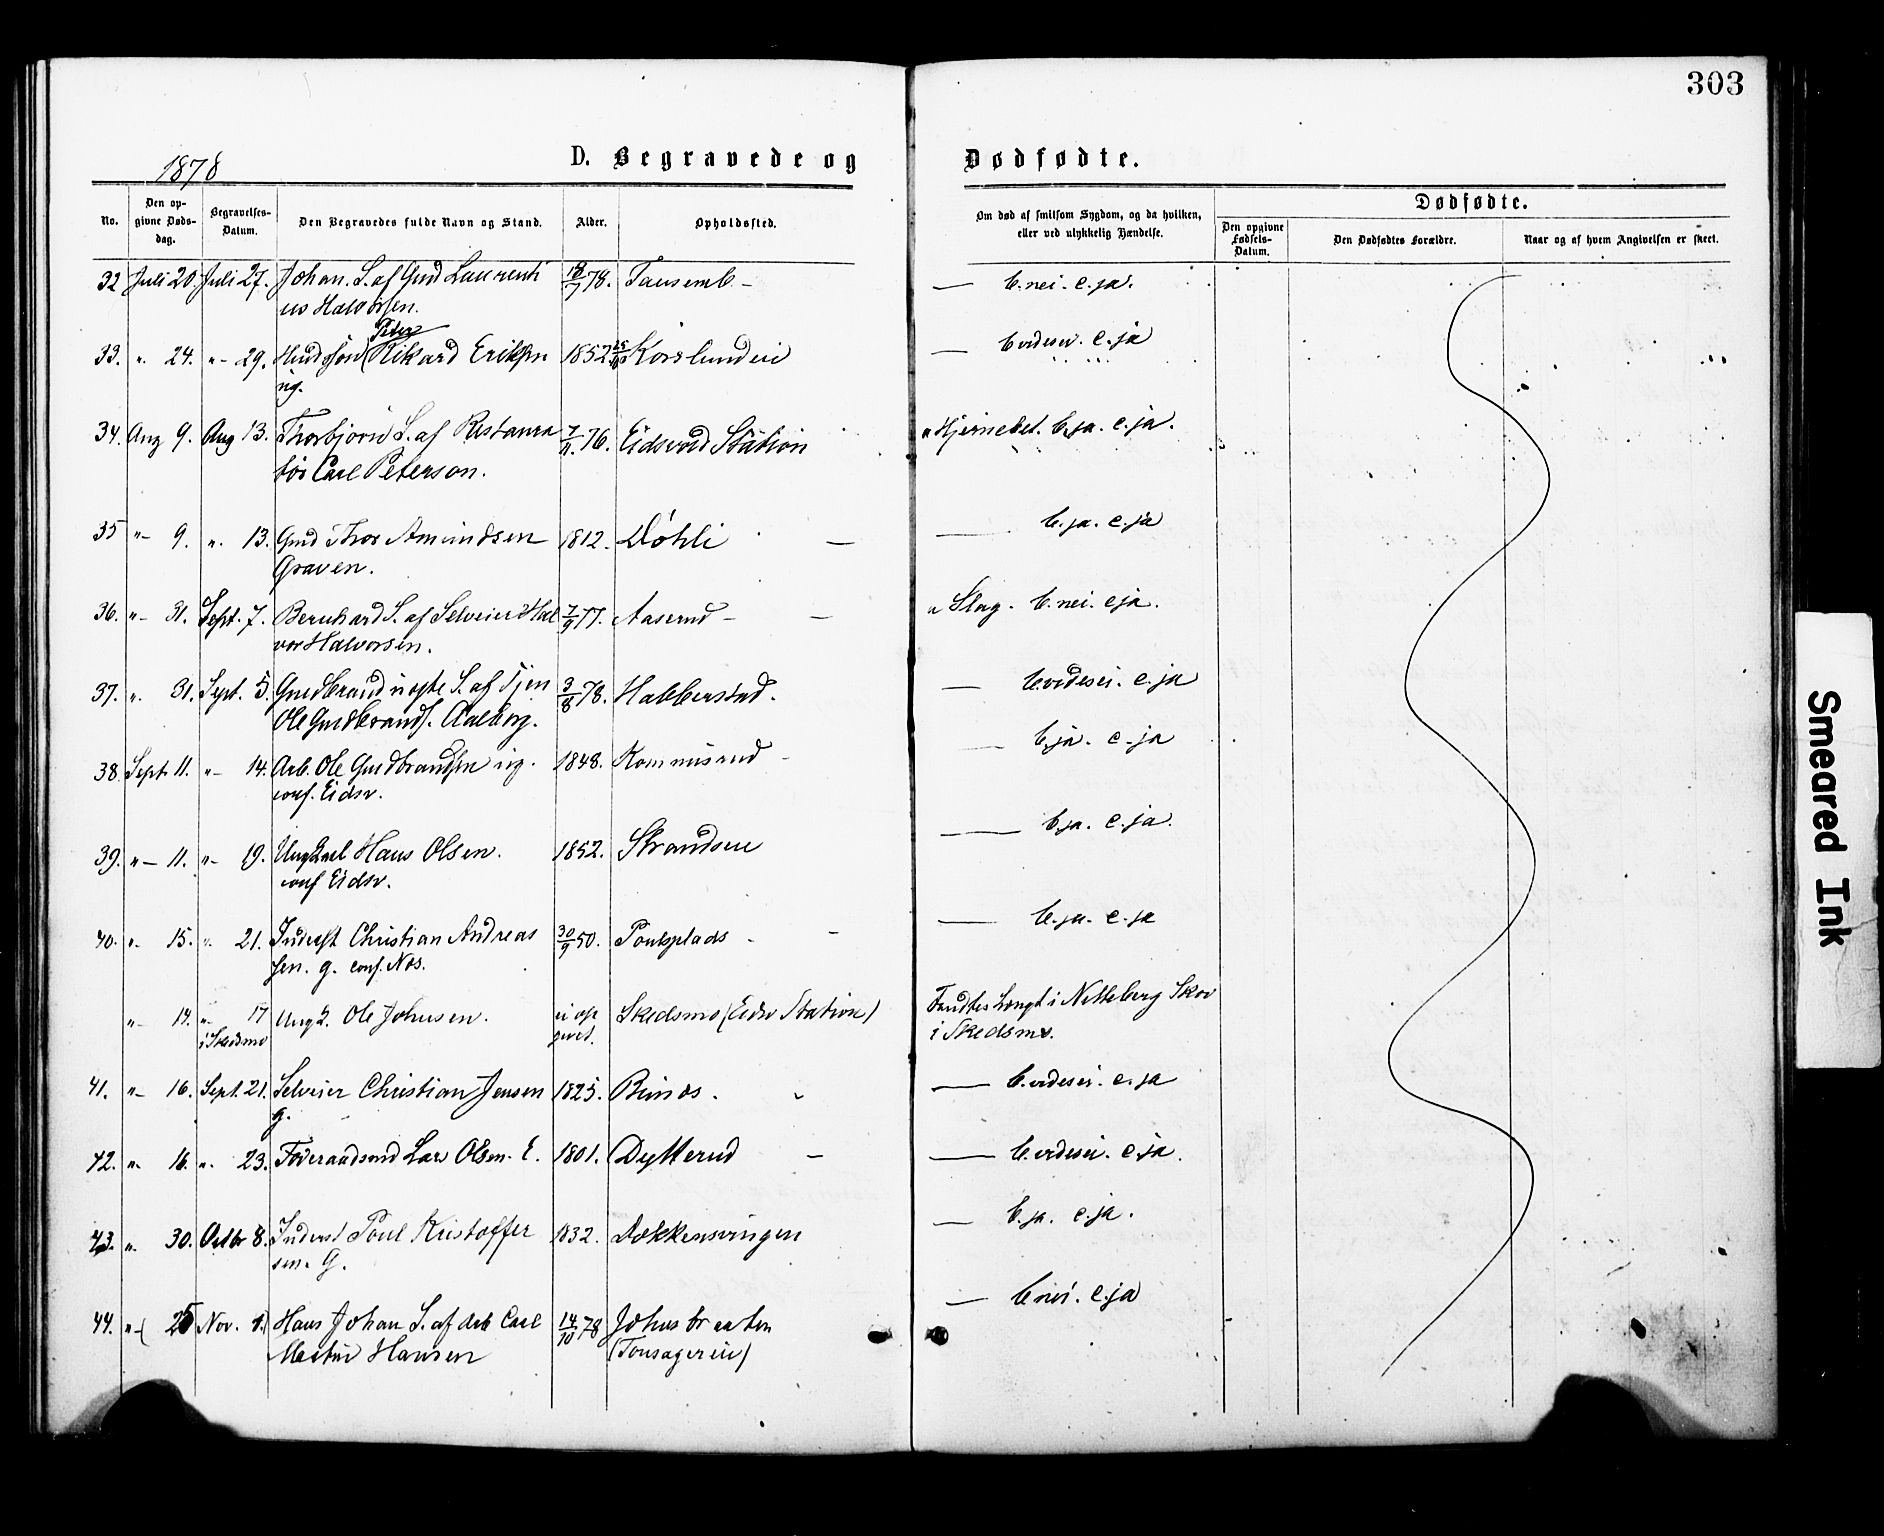 303
1878
D. Begravede og Dødfødte.
No.
Den op-
givne Døds-
dag.
Begravelses-
Datum.
Den Begravedes fulde Navn og Stand.
Alder.
Opholdssted.
Om død af smitsom Sygdom, og da hvilken,
eller ved ulykkelig Hændelse.
Dødfødte.
Den opgivne
Fødsels-
Datum.
Den Dødfødtes Forældre.
Naar og af hvem Angivelsen er skeet.
32 Juli 20. Juli 27. Johan. S. af Gmd Laurenti 18/7 78. Tausemb — — b. nei. c. ja.
us Halvorsen.
Peder
33. „ 24. „ 29. Huudssøn Rikard Eriksen 1852 Korslundeie — b. vides ei. c. ja
ug.
34. Aug 9. Aug 13. Thorbjørn S. af Restaura 7/11 76. Eidsvold Station „ Hjernebet. b. ja. c. ja.
tør Carl Peterson.
35 „ 9. „ 13. Gmd Thor Amundsen 1812. Døhli — — b. ja. c. ja
Graven.
36. „ 31. Sept. 7. Bernhard S. af Selveier Hal 7/9 77. Aaserud — — „ Slag. b. nei. c ja.
vor Halvorsen.
37. „ 31. Sept. 5. Gudbrand uægte S. af Tjen 3/8 78. Habberstad. — b. vides ei. c. ja
Ole Gudbrands. Aalborg.
38. Sept 11. „ 14. Arb. Ole Gudbrandsen ug. 1848. Kommisrud — — b. ja. c. ja
conf. Eidsv.
39. „ 11. „ 19. Ungkarl Hans Olsen. 1852. Strandseie — b. ja. c. ja.
conf Eidsv.
40. „ 15. „ 21. Inderst Christian Andreas 30/9 50. Poulsplads — — b. ja. c. ja
sen. g. conf. Næs.
„ 14. „ 17 Ung k. Ole Johnsen. ei op Skedsmo (Eidsv Station) Fundtes hængt i Nitteberg Skov
i Skedsmo givet. i Skedsmo.
41. „ 16. Sept. 21. Selveier Christian Jensen 1825. Bunæs. — b. vides ei. c. ja
g.
42. „ 16. „ 23. Føderaadsmd Lars Olsen. E. 1801. Dytterud — — b. vides ei. c. ja.
43. „ 30. Octbr 8. Inderst Poul Kristoffer 1832. Dokkensvingen — b. ja. c. ja.
sen. G.
44. „ 25 Nov. 1. Hans Johan S. af arb Carl 14/10 78 Johns braaten — b nei. c. ja
Martin Hansen (Tonsagereie)
Smeared Ink